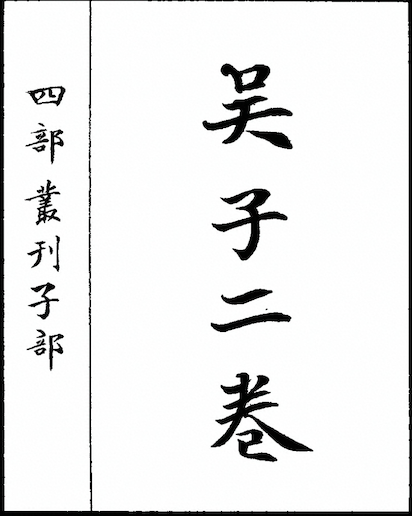 吴子二卷
四部叢刊子部